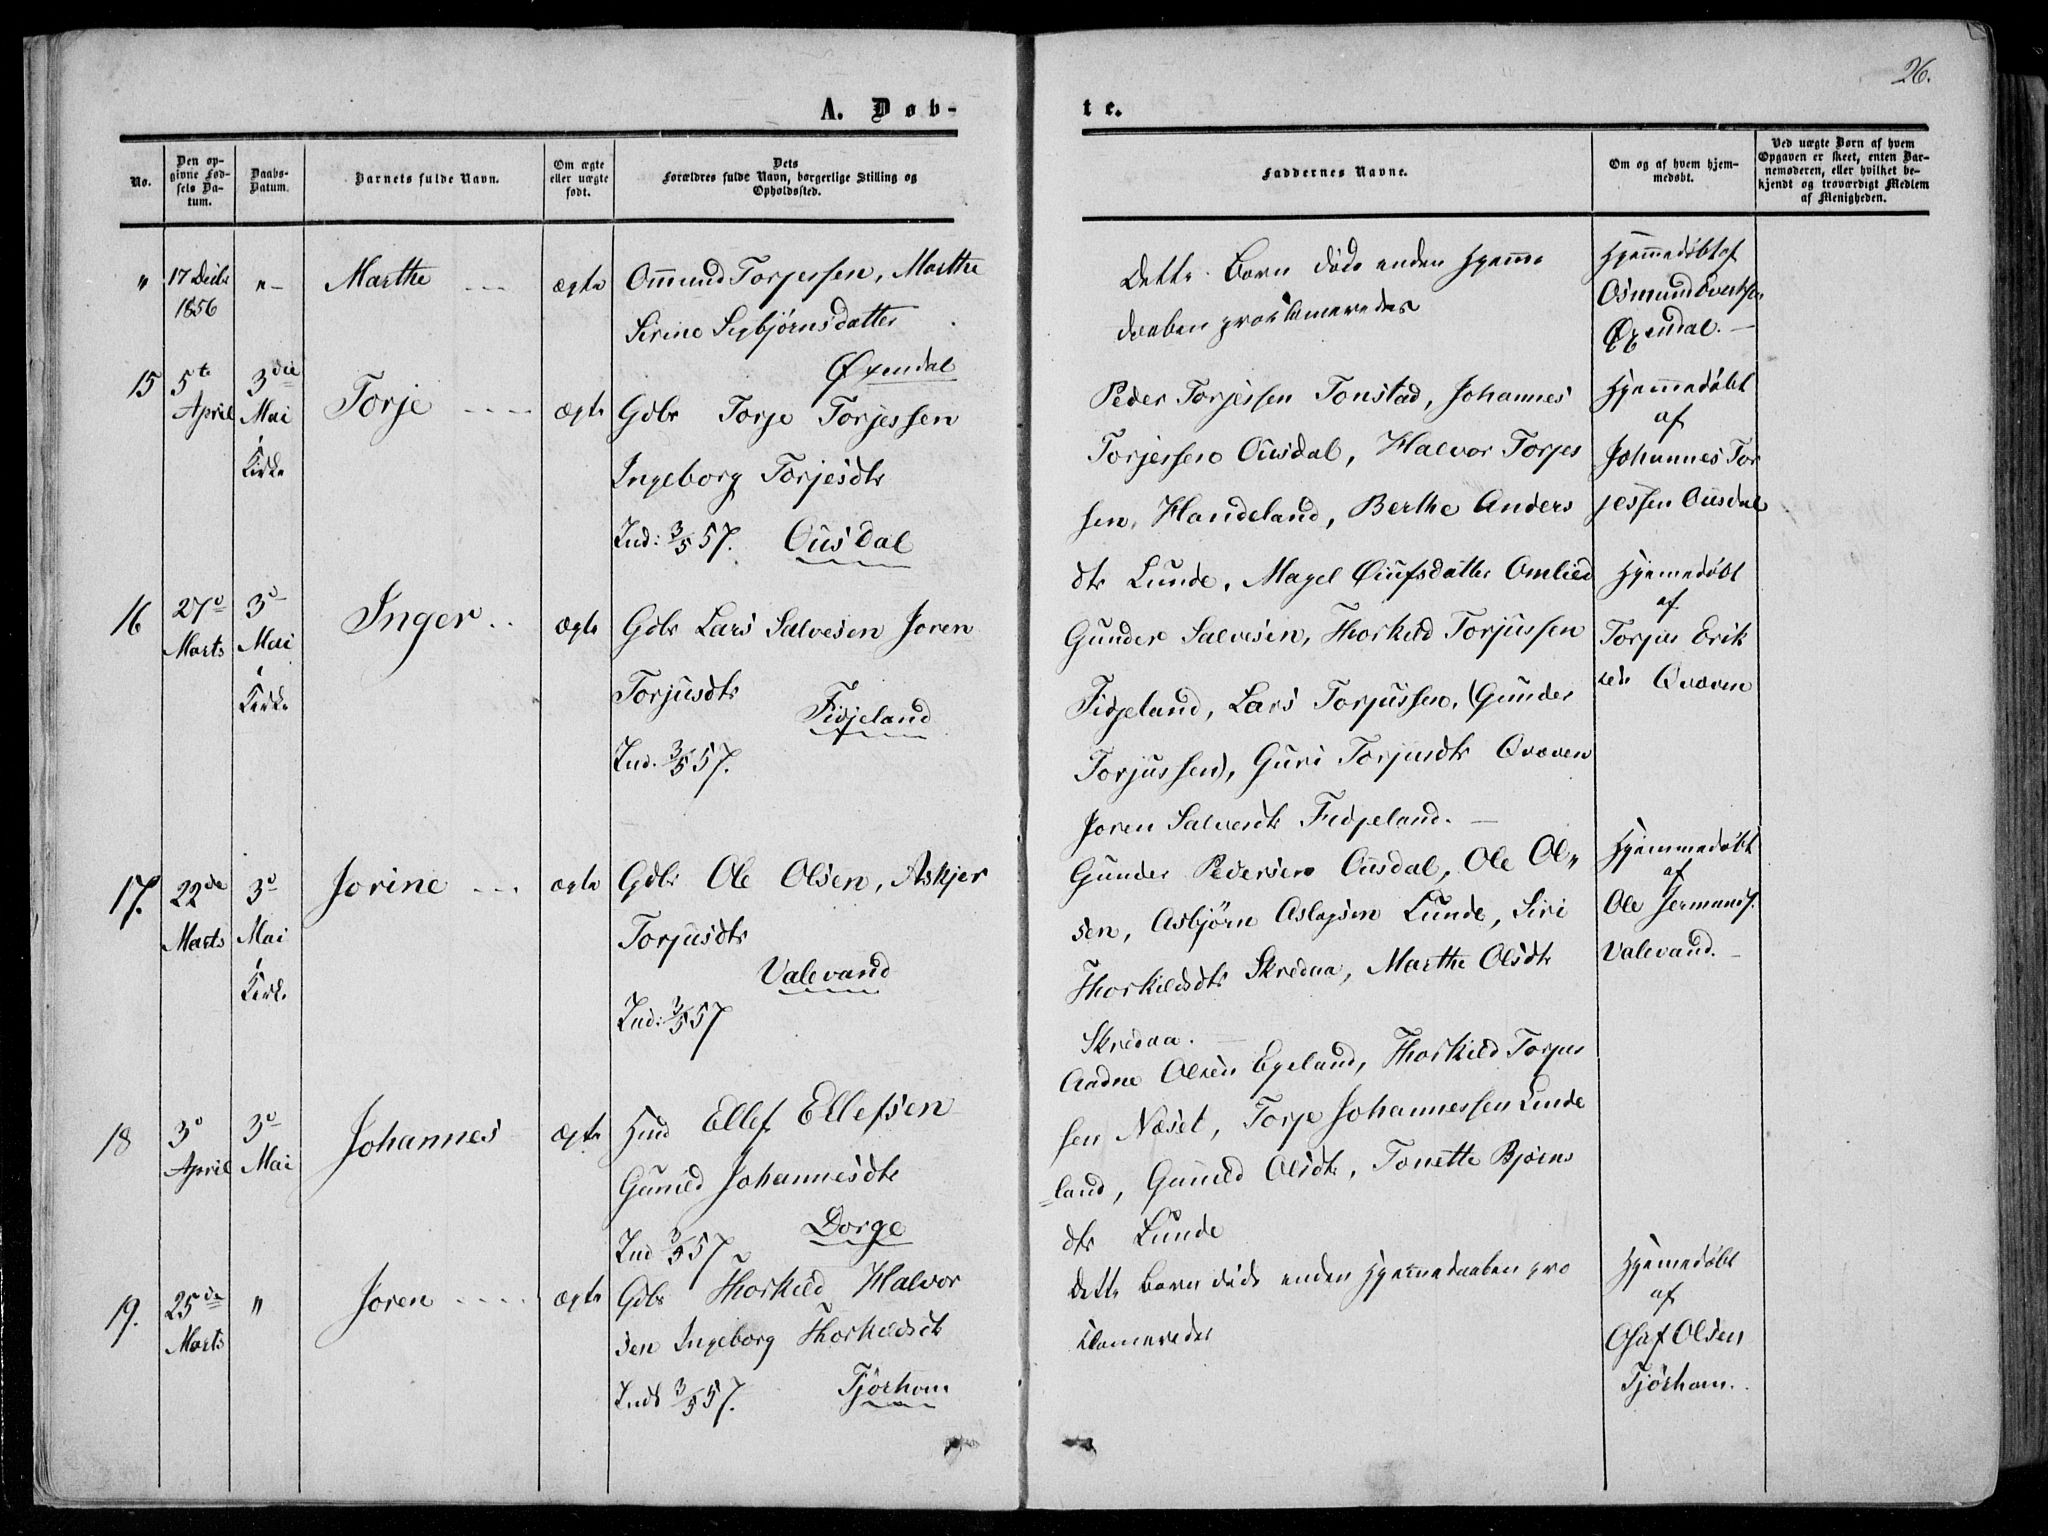 26.
A. Døb-
te.
No.
Den op-
givne Fød-
sels Da-
tum.
Daabs-
Datum.
Barnets fulde Navn.
Om ægte
eller uægte
født.
Dets
Forældres fulde Navn, borgerlige Stilling og
Opholdssted.
Faddernes Navne.
Om og af hvem hjem-
medøbt.
Ved uægte Børn af hvem
Opgaven er skeet, enten Bar-
nemoderen, eller hvilket be-
kjendt og troværdigt Medlem
af Menigheden.
" 17 Decbr
1856
"-
Marthe
ægte
Ommund Torjessen, Marthe
Serine Sigbjørnsdatter
Øxendal
Dette Barn døde enden Hjemme
daaben proklameredes
Hjemmedøbt af
Osmund Evertsen
Øxendal.
15
5te
April
3die
Mai
i
Kirke
Torje
ægte
Gdbr Torje Torjessen
Ingeborg Torjesdtr
Ind: 3/5 57. Ousdal
Peder Torjessen Tonstad, Johannes
Torjessen Ousdal, Halvor Torjes
sen, Handeland, Berthe Anders
dtr Lunde, Magel Omlied
Hjemmedøbt
af
Johannes Tor
jessen Ousdal
16
27de
Marts
3die
Mai
i
Kirke
Inger
ægte
Gdbr Lars Salvesen Joren
Torjusdtr
Fidjeland
Ind. 3/5 57.
Gunder Salvesen, Thorkild Torjussen
Fidjeland, Lars Torjussen, (Gunder
Torjussen), Guri Torjusdtr Qvæven
Joren Salvesdtr Fidjeland.
Hjemmedøbt
af
Torjus Erik
sen Qvæven
17.
22de
Marts
3die
Mai
i
Kirke
Jorine
ægte
Gdbr Ole Olsen, Askjer
Torjusdtr
Valevand
Ind: 3/5 57
Gunder Pedersen Ousdal, Ole Ol-
sen, Asbjørn Aslagsen Lunde, Siri
Thorkildsdtr Skredaa, Marthe Olsdtr
Skredaa.
Hjemmedøbt
af
Ole Jermunds.
Valevand.
18
3die
April
3die
Mai
Johannes
ægte
Hmd Ellef Ellefsen
Gunild Johannesdtr
Dorge
Ind 3/5 57.
Aadne Olsen Egeland, Thorkild Torjus
sen Næset, Torje Johannessen Linde
land, Gunild Olsdtr, Tonette Bjørns
dtr Lunde
19.
25de
Marts
"
Joren
ægte
Gdbr Thorkild Halvor
sen Ingeborg Thorkildsdtr
Ind 3/5 57. Tjørhom
Dette Barn døde enden Hjemmedaaben pro
klameredes
Hjemmedøbt
af
Olaf Olsen
Tjørhom.